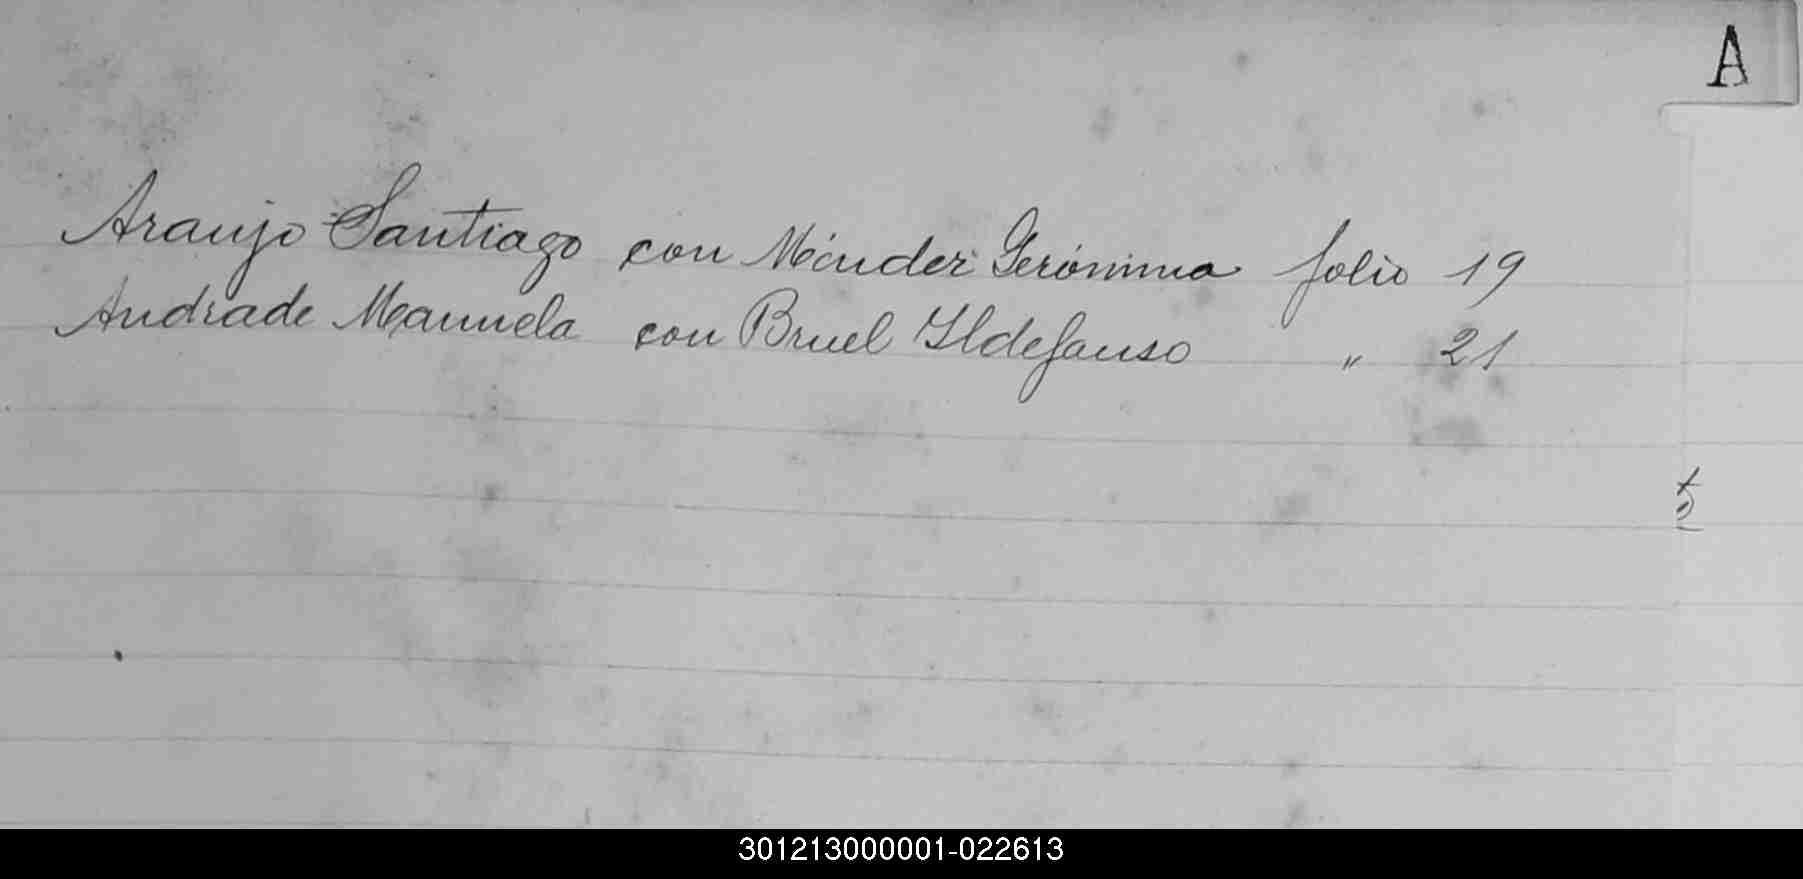 A
Araujo Santiago con Méndez Gerónima folio 19
Andrade Manuela con Bruel Ildefonso " 21
301213000001-022613